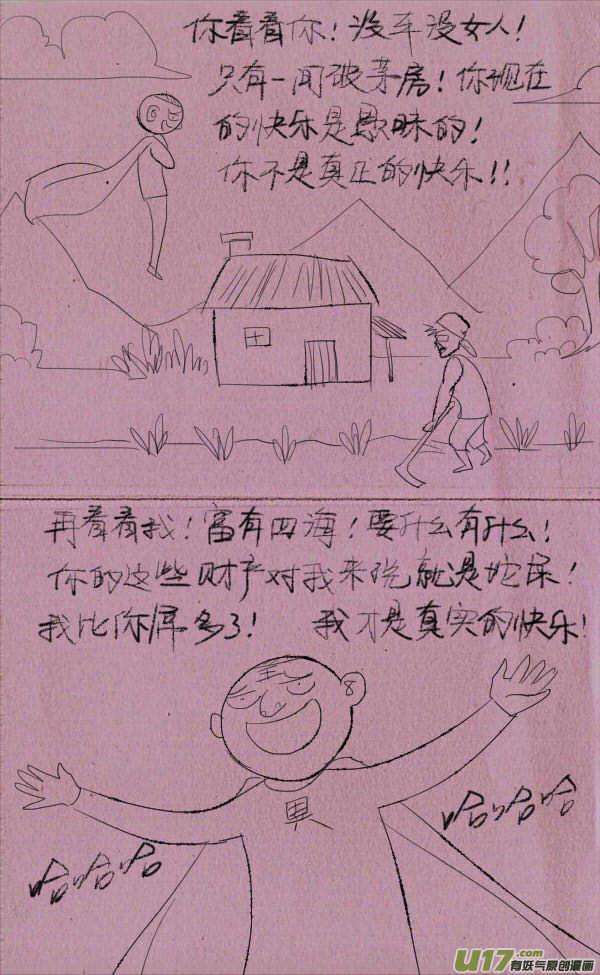 你看看你！没车没女人！
只有一间破茅房！你现在
的快乐是愚昧的！
你不是真正的快乐！！
再看看我！富有四海！要什么有什么！
你的这些财产对我来说就是坨屎！
我比你屌多了！ 我才是真实的快乐！
哈哈哈
哈哈哈
U17.com
有妖气原创漫画